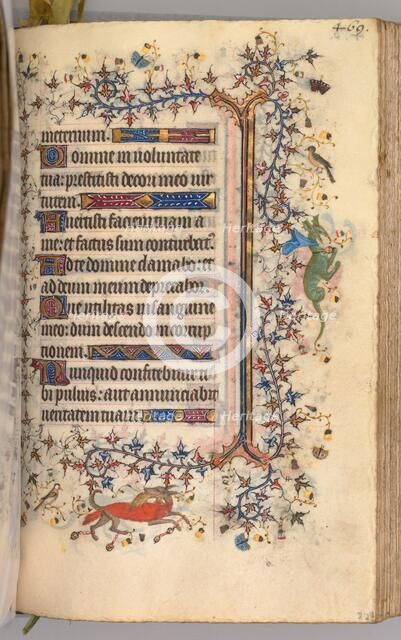 469.
meternum.
Domine in uoluntate
tua: prestitisti decori meo uir
tutem.
Auertisti faciem tuam a
me: et factus sum conturbat᷒.
Ad te domine clamabo: et
ad deum meum deprecabor.
Que utilitas in sanguine
meo: dum descendo in corrup
tionem.
Nunquid confitebitur ti
bi puluis: aut annunciabit
ueritatem tuam.
Heritage
Heritage
Heritage
Heritage